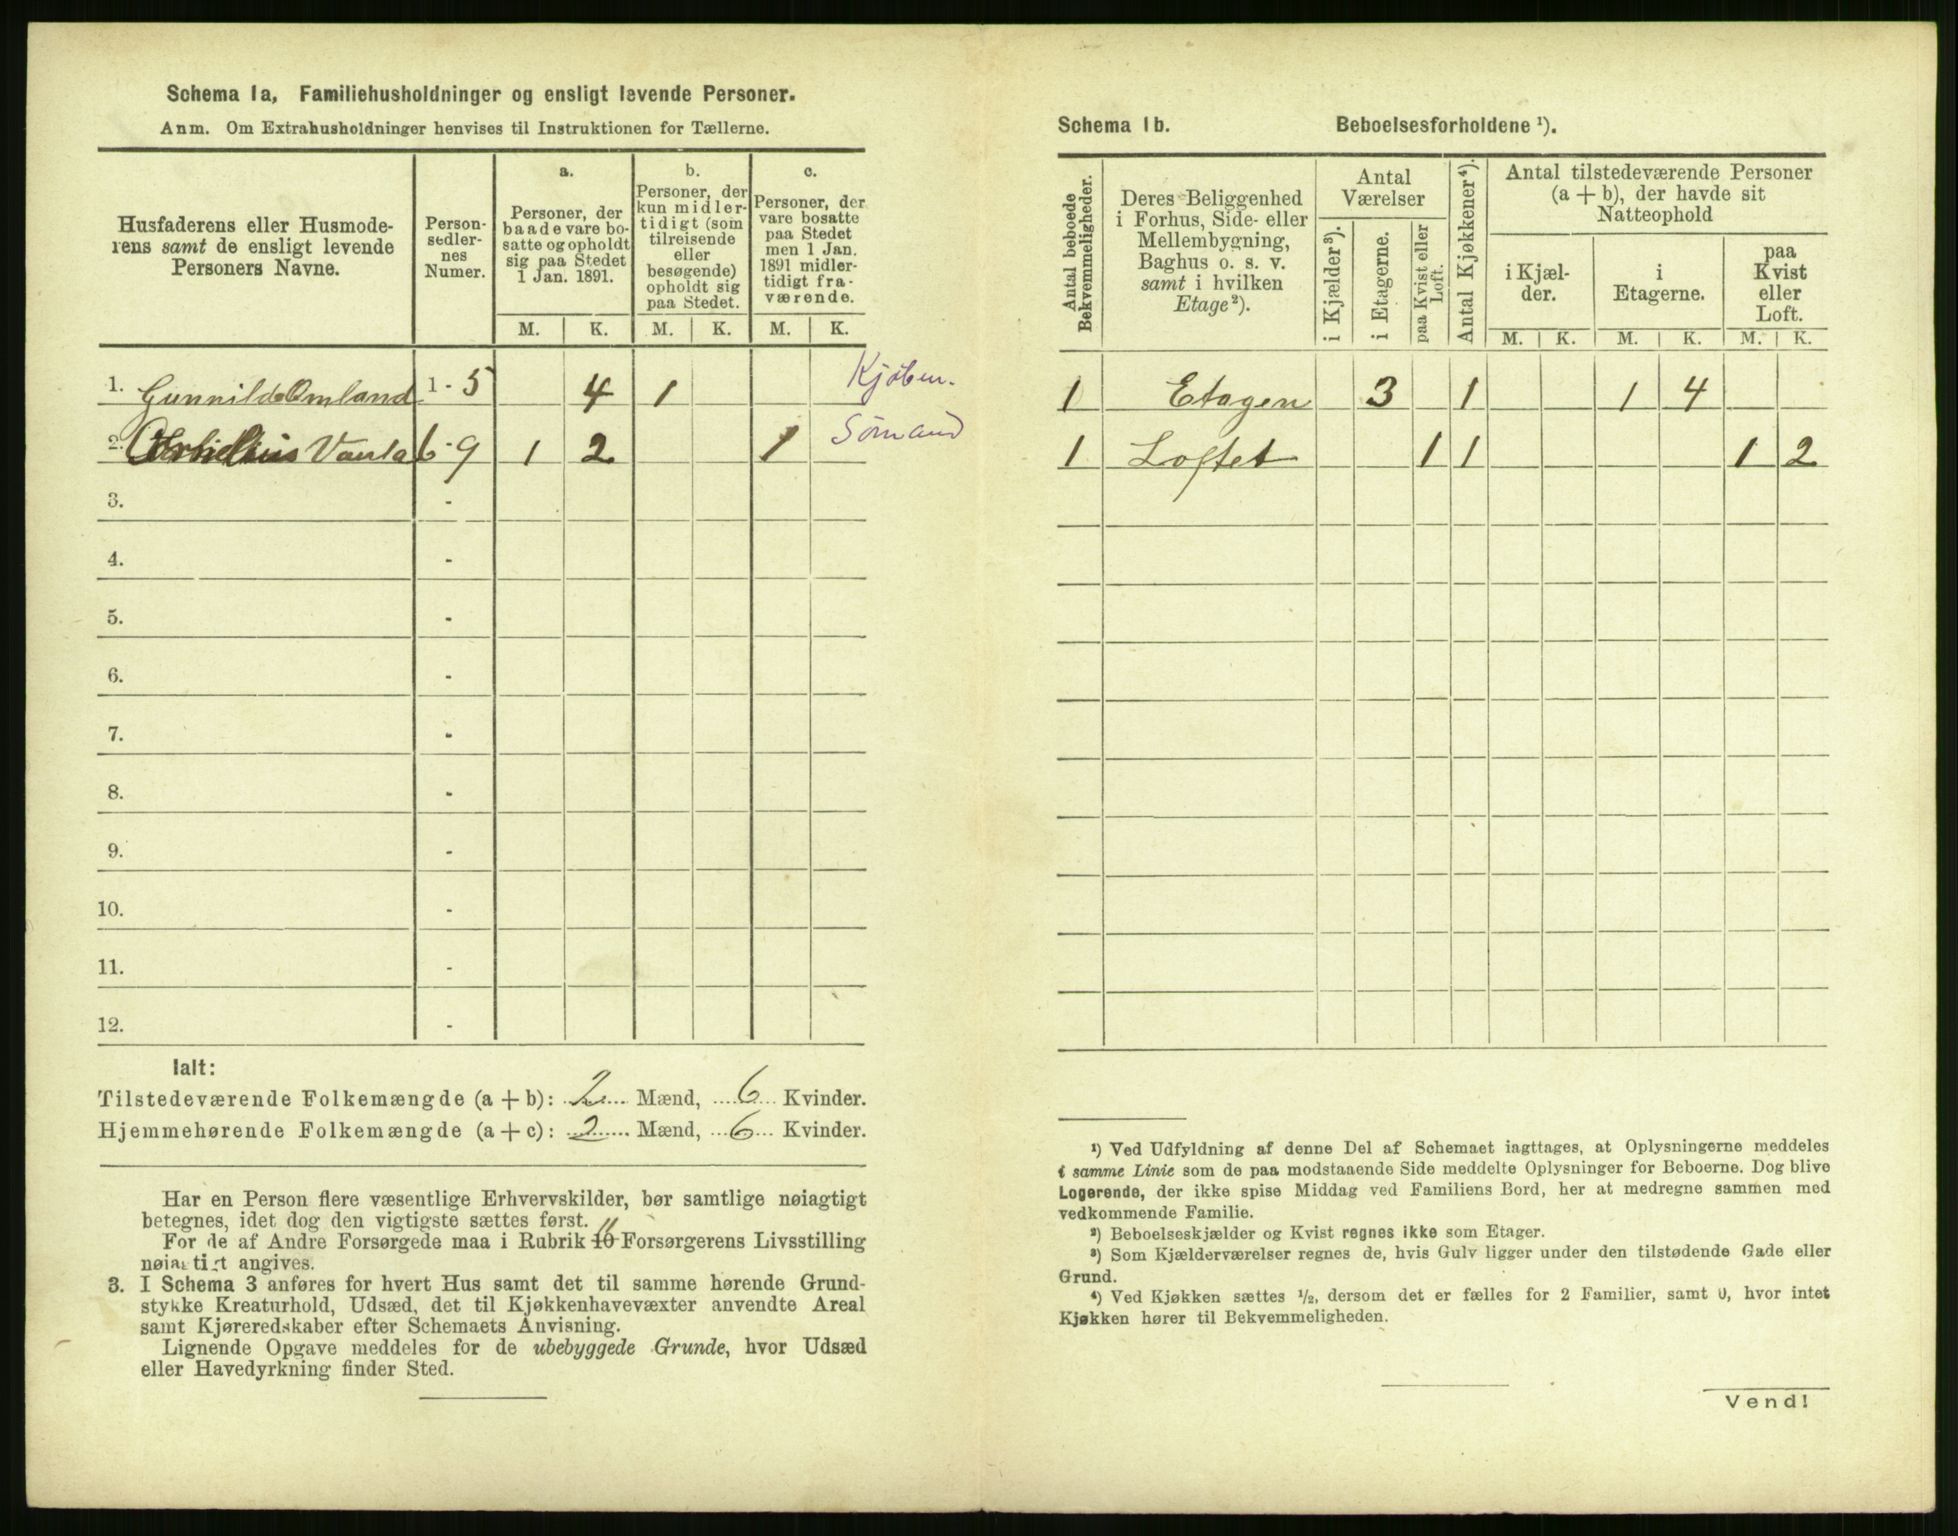 Schema Ia, Familiehusholdninger og ensligt levende Personer.
Anm. Om Extrahusholdninger henvises til Instruktionen for Tællerne.
Husfaderens eller Husmode-
rens samt de ensligt levende
Personers Navne.
Person-
sedler-
nes
Numer.
a.
Personer, der
baade vare bo-
satte og opholdt
sig paa Stedet
1 Jan. 1891.
b.
Personer, der
kun midler-
tidigt (som
tilreisende
eller
besøgende)
opholdt sig
paa Stedet.
c.
Personer, der
vare bosatte
paa Stedet
men 1 Jan.
1891 midler-
tidigt fra-
værende.
M. K. M. K. M. K.
1. Gunnild Omland 1 - 5 4 1 Kjøben.
2. Vanla 6 - 9 1 2 1 Sømand
3. -
4. -
5. -
6. -
7. -
8. -
9. -
10. -
11. -
12. -
Ialt:
Tilstedeværende Folkemængde (a + b): 2 Mænd, 6 Kvinder.
Hjemmehørende Folkemængde (a + c): 2 Mænd, 6 Kvinder.
Har en Person flere væsentlige Erhvervskilder, bør samtlige nøiagtigt
betegnes, idet dog den vigtigste sættes først.
11
For de af Andre Forsørgede maa i Rubrik 10 Forsørgerens Livsstilling
nøiagtigt angives.
3. I Schema 3 anføres for hvert Hus samt det til samme hørende Grund-
stykke Kreaturhold, Udsæd, det til Kjøkkenhavevæxter anvendte Areal
samt Kjøreredskaber efter Schemaets Anvisning.
Lignende Opgave meddeles for de ubebyggede Grunde, hvor Udsæd
eller Havedyrkning finder Sted.
Schema Ib. Beboelsesforholdene ¹).
Antal beboede
Bekvemmeligheder.
Deres Beliggenhed
i Forhus, Side- eller
Mellembygning,
Baghus o. s. v.
samt i hvilken
Etage²).
Antal
Værelser
i Kjælder³).
i Etagerne.
paa Kvist eller
Loft.
Antal Kjøkkener⁴).
Antal tilstedeværende Personer
(a + b), der havde sit
Natteophold
i Kjæl-
der.
i
Etagerne.
paa
Kvist
eller
Loft.
M. K. M. K. M. K.
1 Etagen 3 1 1 4
1 Loftet 1 1 1 2
¹) Ved Udfyldning af denne Del af Schemaet iagttages, at Oplysningerne meddeles
i samme Linie som de paa modstaaende Side meddelte Oplysninger for Beboerne. Dog blive
Logerende, der ikke spise Middag ved Familiens Bord, her at medregne sammen med
vedkommende Familie.
²) Beboelseskjælder og Kvist regnes ikke som Etager.
³) Som Kjælderværelser regnes de, hvis Gulv ligger under den tilstødende Gade eller
Grund.
⁴) Ved Kjøkken sættes ½, dersom det er fælles for 2 Familier, samt 0, hvor intet
Kjøkken hører til Bekvemmeligheden.
Vend!